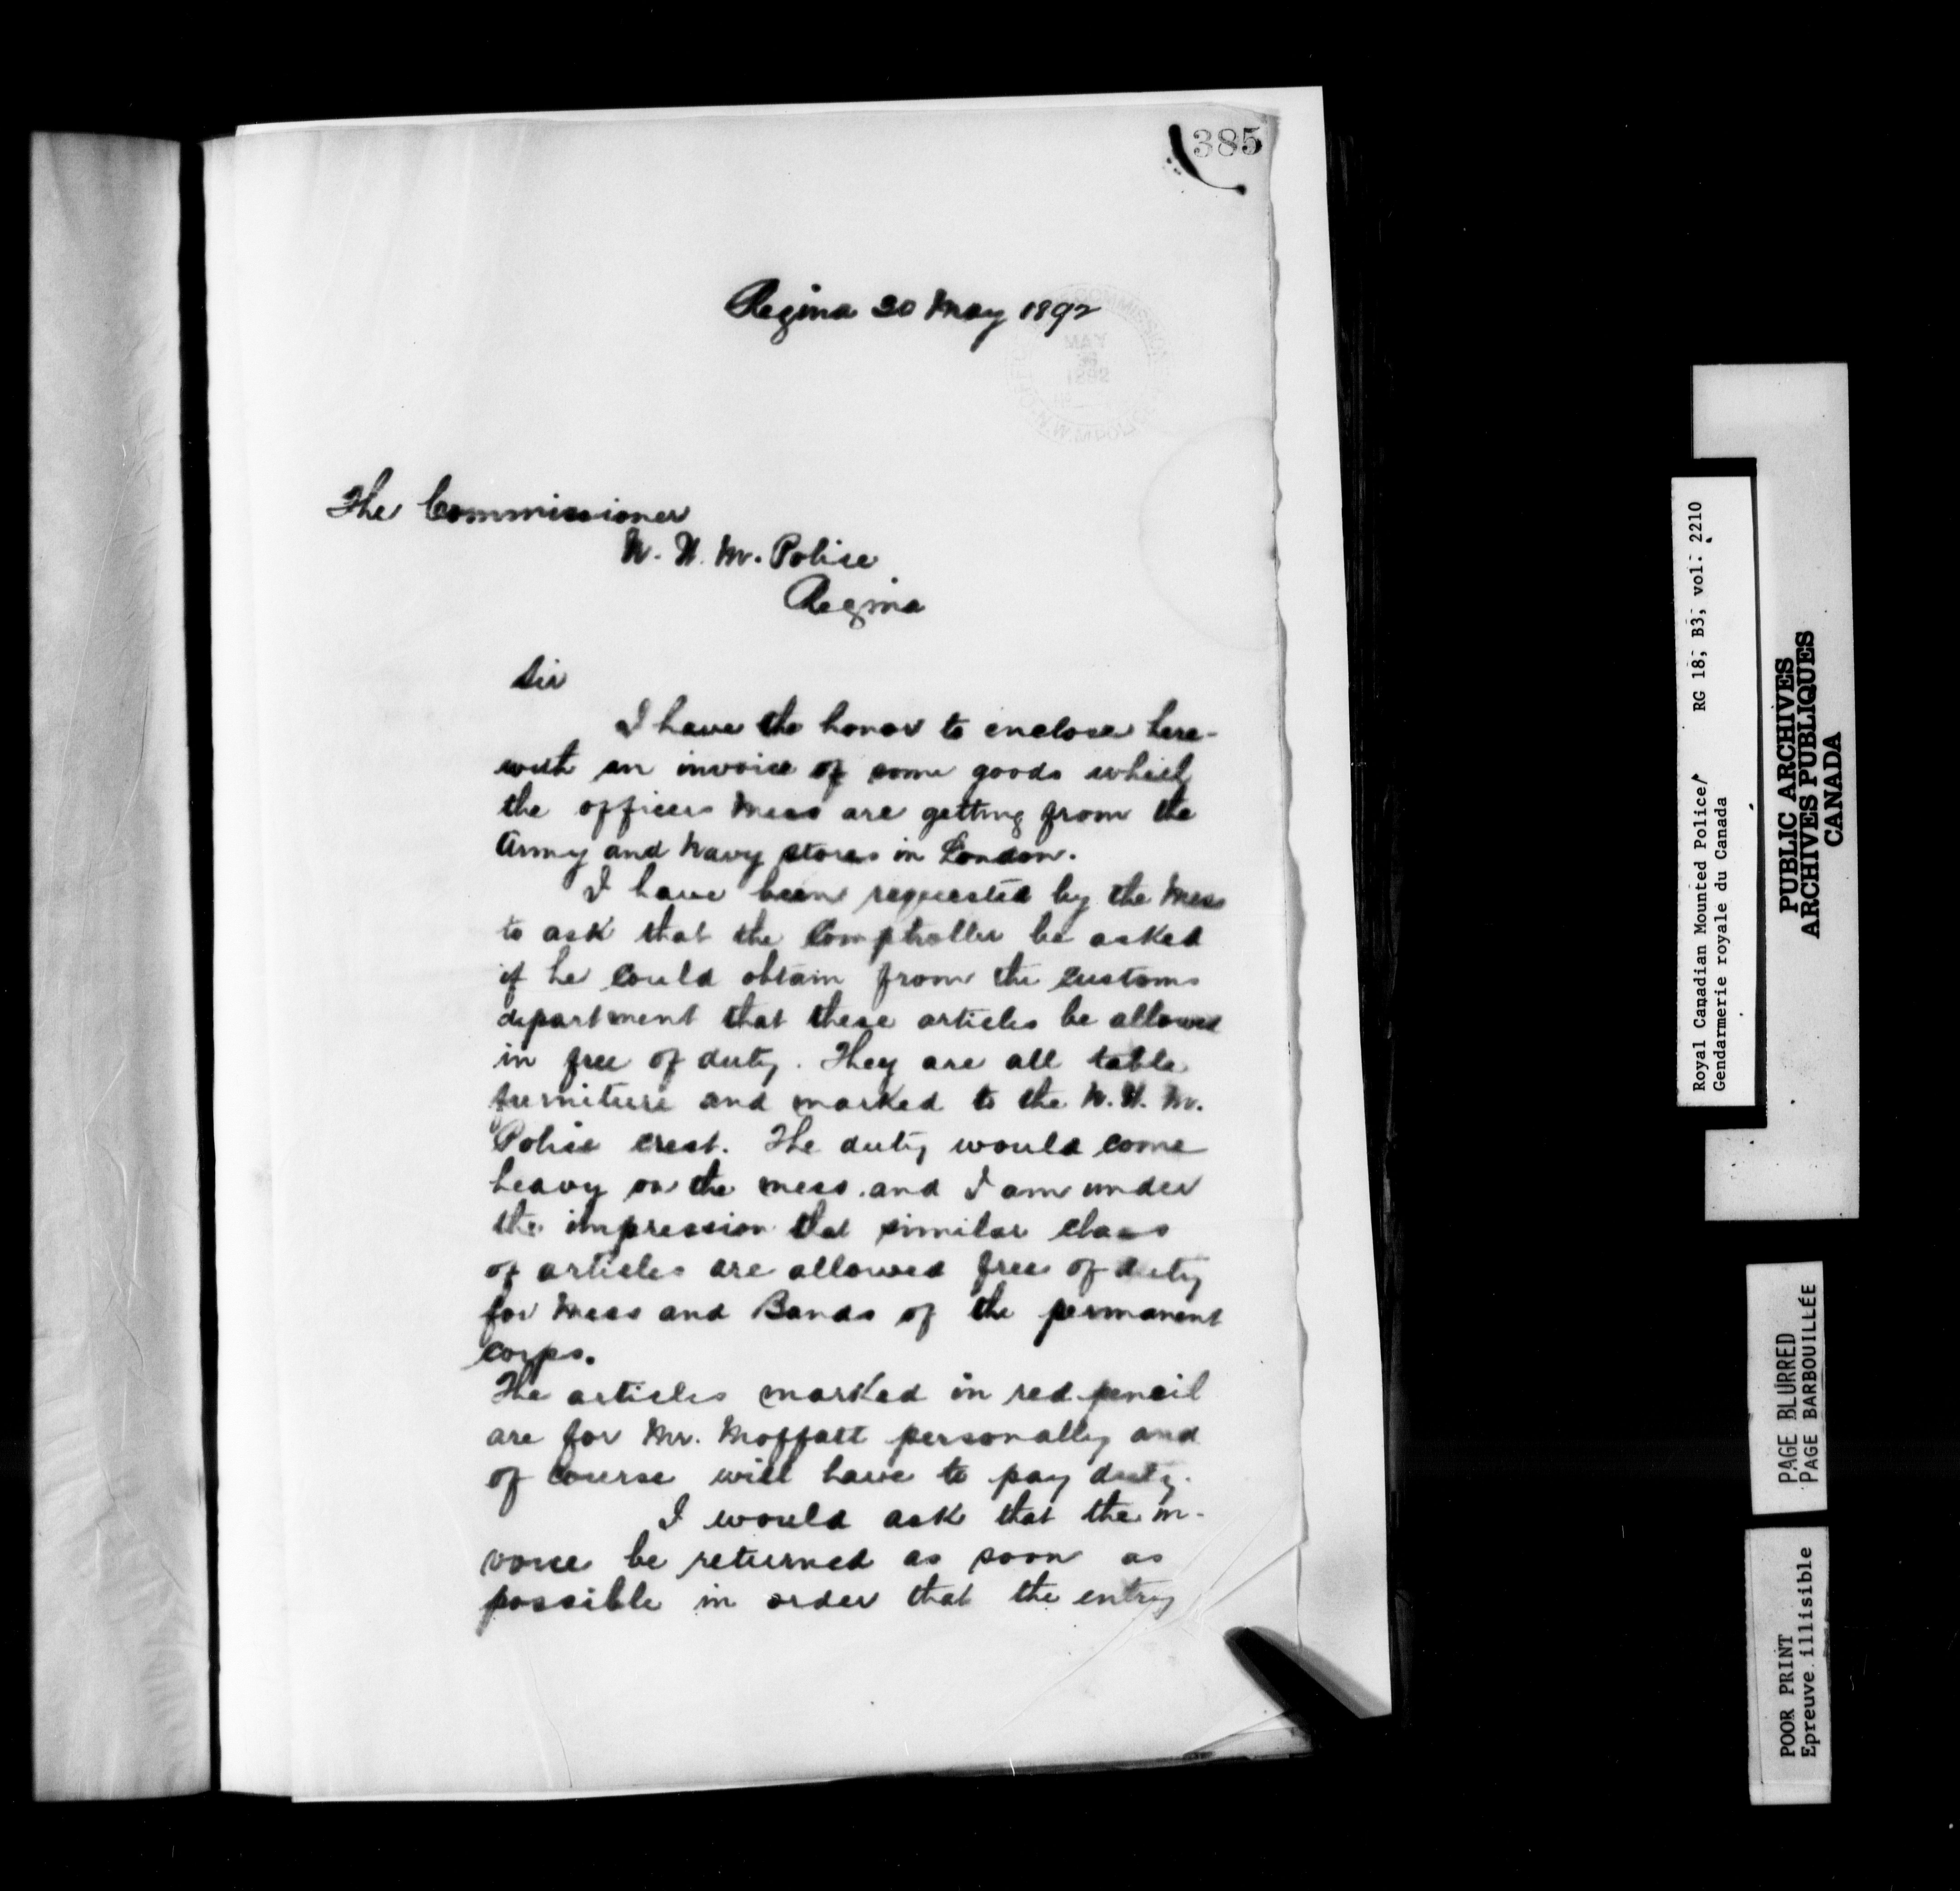 385
Regina 30 May 1892
MAY
1892
The Commissioner
N. W. M. Police
Regina
Sir
I have the honor to enclose here-
with an invoice of some goods which
the officers Mess are getting from the
Army and Navy stores in London.
I have been requested by the Mess
to ask that the Comptroller be asked
if he could obtain from the Customs
department that these articles be allowed
in free of duty. They are all table
furniture and marked to the N. W. M.
Police crest. The duty would come
heavy on the mess and I am under
the impression that similar class
of articles are allowed free of duty
for Mess and Bands of the permanent
corps.
The articles marked in red pencil
are for Mr. Moffatt personally and
of course will have to pay duty.
I would ask that the in-
voice be returned as soon as
possible in order that the entry
Royal Canadian Mounted Police/ RG 18, B3, vol. 2210
Gendarmerie royale du Canada
PUBLIC ARCHIVES
ARCHIVES PUBLIQUES
CANADA
PAGE BLURRED
PAGE BARBOUILLÉE
POOR PRINT
Epreuve illisible